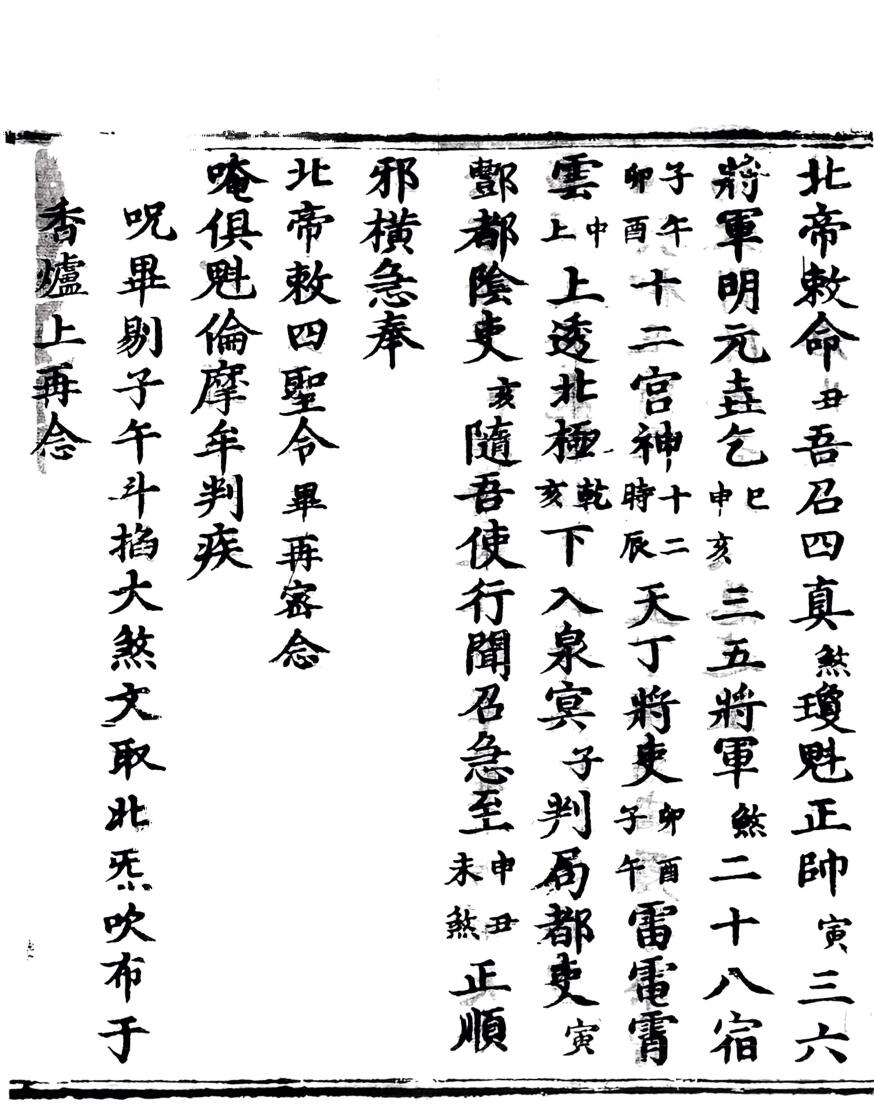 北帝敕命丑吾召四真煞瓊魁正帥寅三六
將軍明元壵乞巳申亥三五將軍煞二十八宿
子午卯酉十二宮神十二時辰天丁將吏卯酉子午雷電霄
雲中上上透北極乾亥下入泉冥子判局都吏寅
酆都陰吏亥隨吾使行聞召急至申丑未煞正順
邪橫急奉
北帝敕四聖令畢再密念
唵俱魁倫摩牟判疾
呪畢剔子午斗掐大煞文取北炁吹布于
香爐上再念